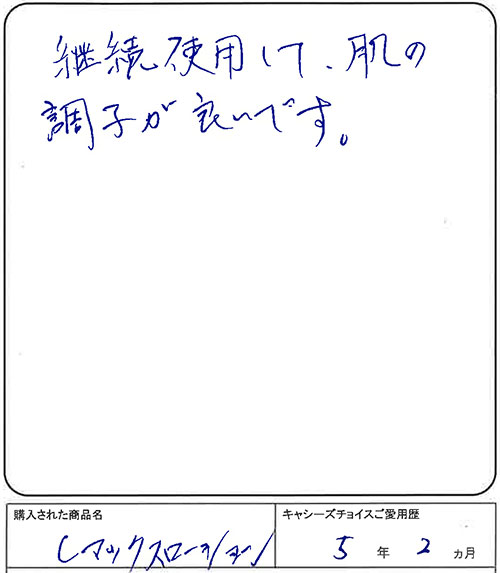 継続使用して、肌の
調子が良いです。
購入された商品名
Cマックスローション
キャシーズチョイスご愛用歴
5年2ヵ月